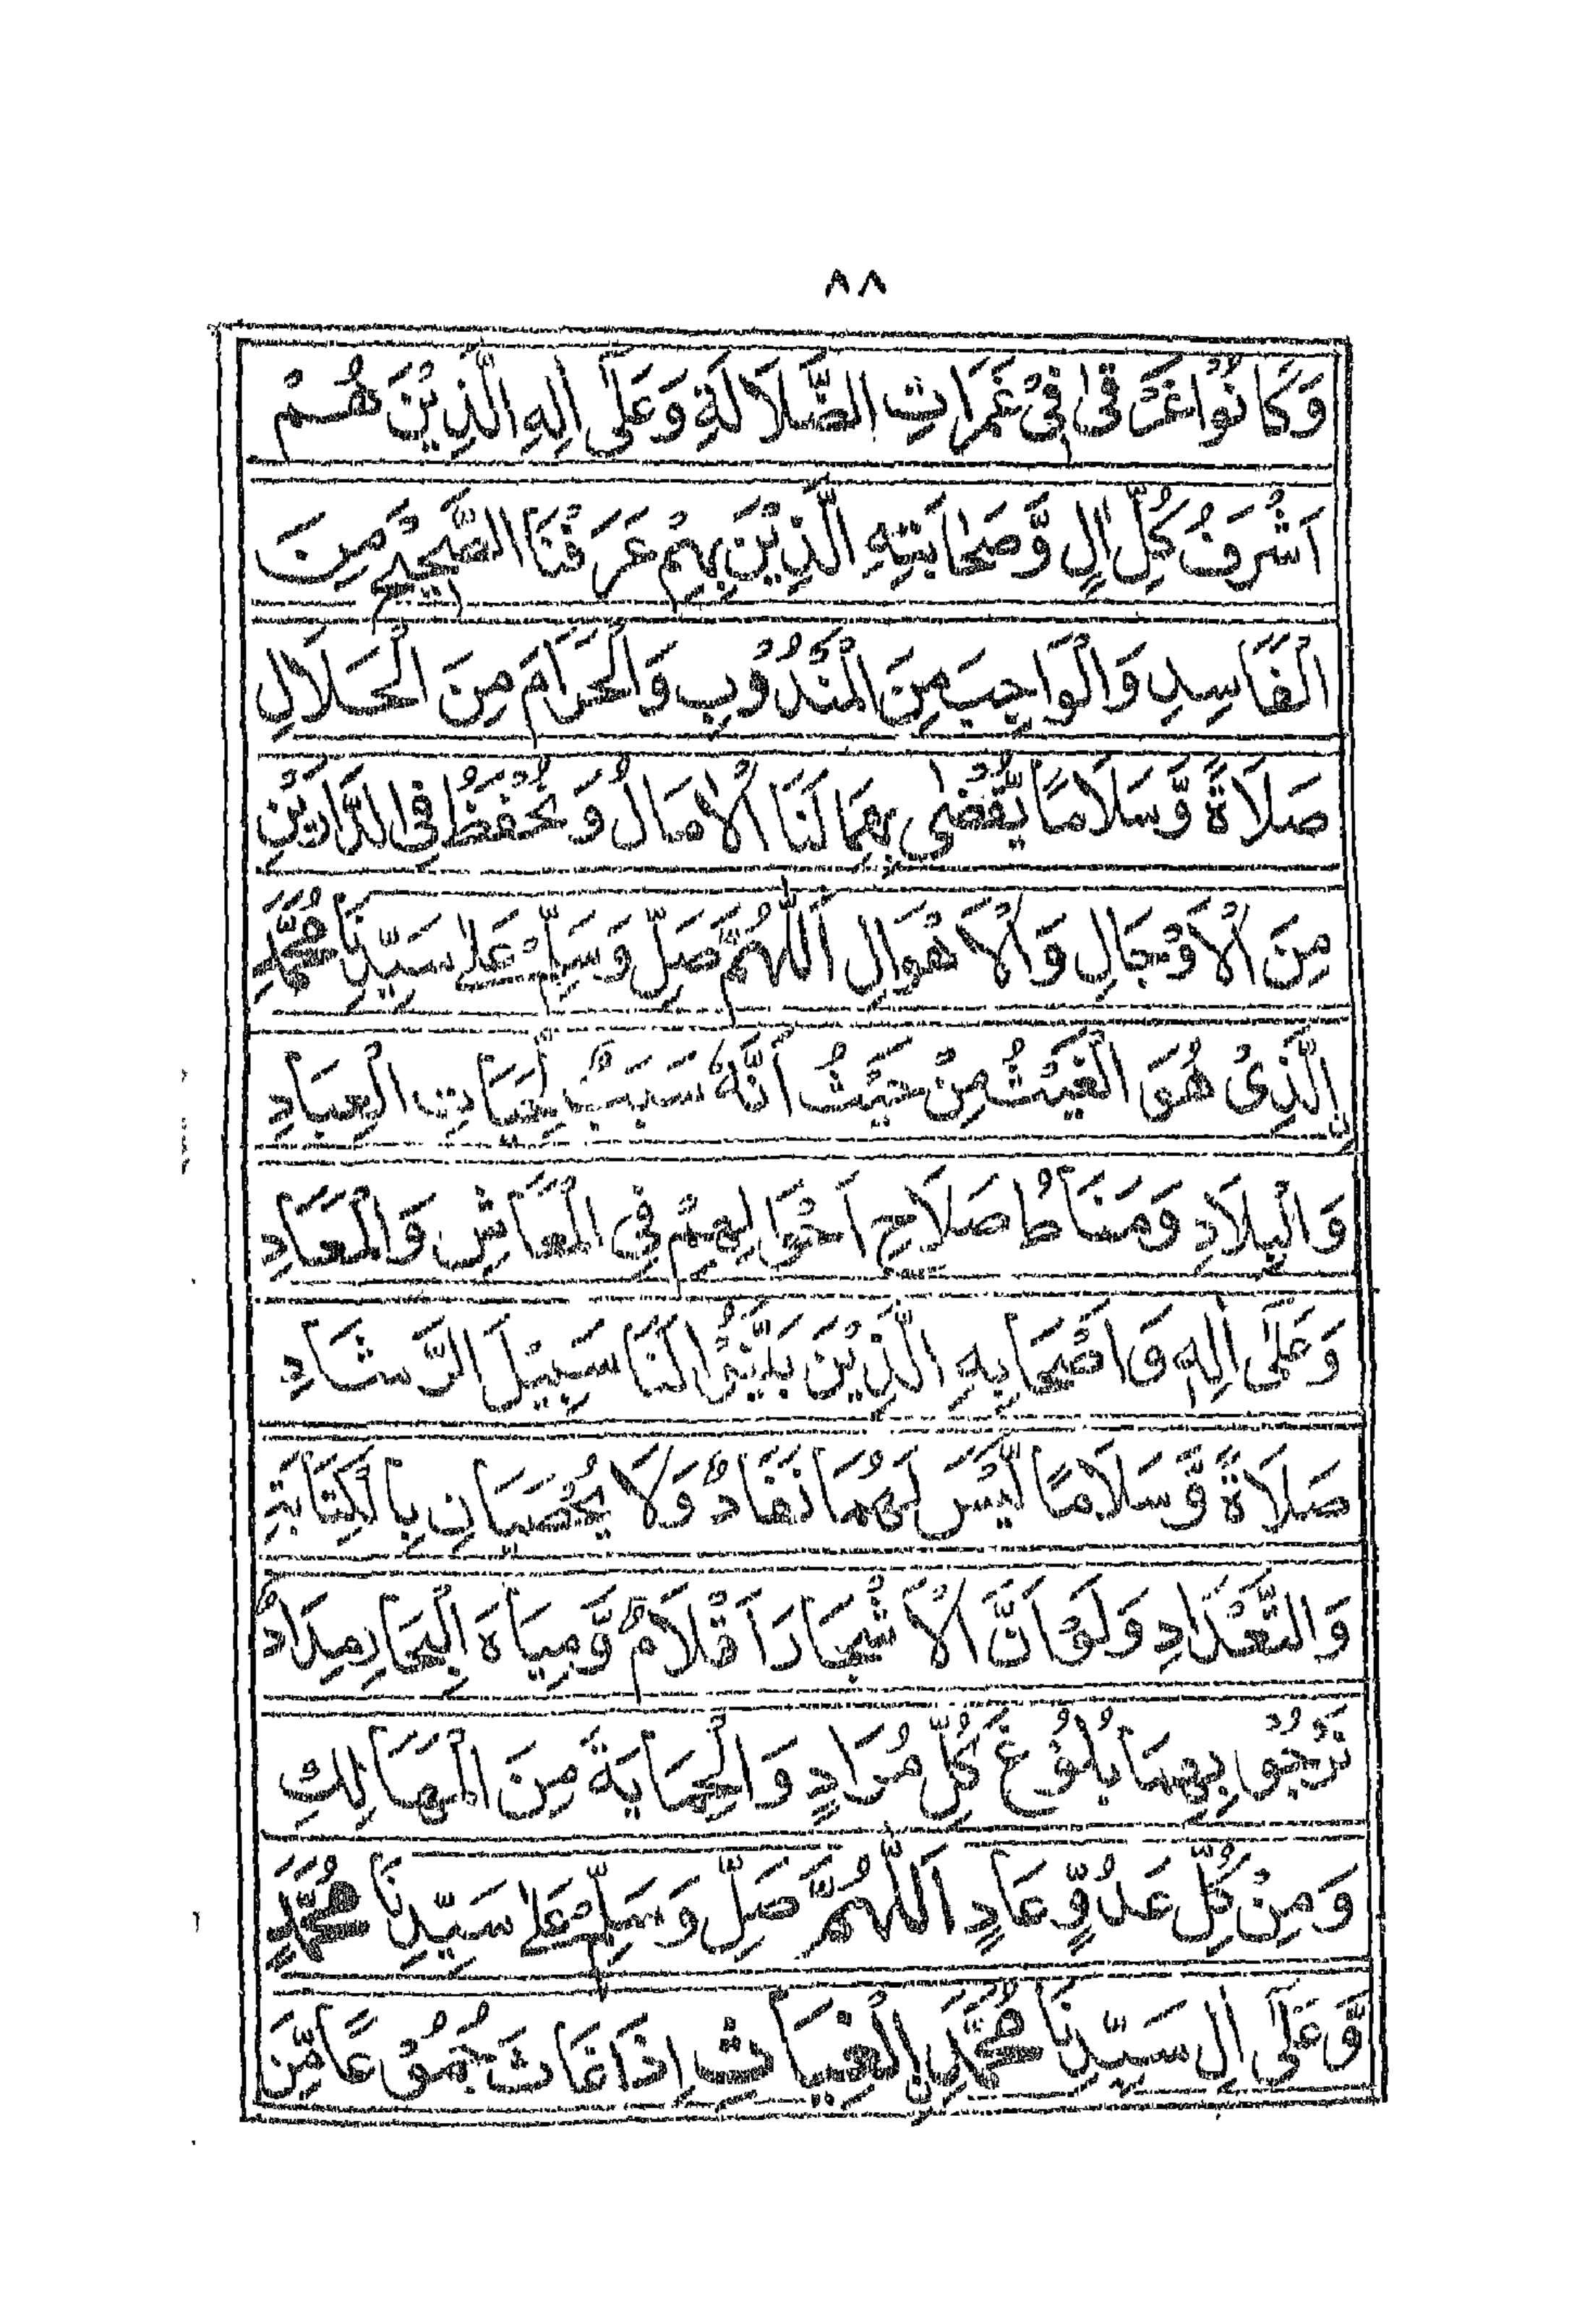 ٨٨
وَكَانُوْا غَرْقٰى فِيْ غَمَرَاتِ الضَّلَالَةِ وَعَلٰٓى اٰلِهِ الَّذِيْنَ هُمْ
اَشْرَفُ كُلِّ اٰلٍ وَّصَحَابَتِهِ الَّذِيْنَ بِهِمْ عَرَفْنَا الصَّحِيْحَ مِنَ
الْفَاسِدِ وَالْوَاجِبَ مِنَ الْمَنْدُوْبِ وَالْحَرَامَ مِنَ الْحَلَالِ
صَلَاةً وَّسَلَامًا يُّقْضٰى بِهِمَا لَنَا الْاٰمَالُ وَنُحْفَظُ فِى الدَّارَيْنِ
مِنَ الْاَوْجَالِ وَالْاَهْوَالِ اَللّٰهُمَّ صَلِّ وَسَلِّمْ عَلٰى سَيِّدِنَا مُحَمَّدِ
ِالَّذِىْ هُوَ الْغَيْثُ مِنْ حَيْثُ اَنَّهٗ سَبَبٌ لِحَيَاتِ الْعِبَادِ
وَالْبِلَادِ وَمَنَاطُ صَلَاحِ اَحْوَالِهِمْ فِى الْمَعَاشِ وَالْمَعَادِ
وَعَلٰٓى اٰلِهٖ وَاَصْحَابِهِ الَّذِيْنَ بَيَّنُوْا لَنَا سَبِيْلَ الرَّشَادِ
صَلَاةً وَّسَلَامًا لَّيْسَ لَهُمَا نَفَادٌ وَلَا يُحْصَيَانِ بِالْكِتَابَةِ
وَالتَّعْدَادِ وَلَوْ اَنَّ الْاَشْجَارَ اَقْلَامٌ وَّمِيَاهَ الْبِحَارِ مِدَادٌ
نَرْجُو بِهِمَا بُلُوْغَ كُلِّ مُرَادٍ وَالْحِمَايَةَ مِنَ الْمَهَالِكِ
وَمِنْ كُلِّ عَدُوٍّ عَادٍ اَللّٰهُمَّ صَلِّ وَسَلِّمْ عَلٰى سَيِّدِنَا مُحَمَّدٍ
وَّعَلٰٓى اٰلِ سَيِّدِنَا مُحَمَّدِ نِالْغِيَاثِ اِذَا غَاثَ جُمُوْعًا مِّنَ